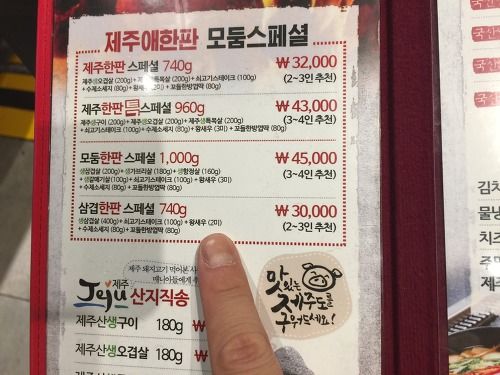 제주애한판 모둠스페셜
제주한판 스페셜 740g ₩ 32,000
제주생오겹살 (200g) + 제주생특목살 (200g) + 쇠고기스테이크 (100g) (2~3인 추천)
+ 수제소세지 (80g) + 왕새우 (2미) + 꼬들한방껍딱 (80g)
제주한판 특스페셜 960g ₩ 43,000
제주생구이 (200g) + 제주생오겹살 (200g) + 제주생특목살 (200g) (3~4인 추천)
+ 쇠고기스테이크 (100g) + 왕새우 (3미) + 꼬들한방껍딱 (80g)
모둠한판 스페셜 1,000g ₩ 45,000
생삼겹살 (200g) + 생가브리살 (180g) + 생항정살 (160g) (3~4인 추천)
+ 생갈매기살 (100g) + 쇠고기스테이크 (100g) + 왕새우 (3미)
+ 수제소세지 (80g) + 꼬들한방껍딱 (80g)
삼겹한판 스페셜 740g ₩ 30,000
생삼겹살 (400g) + 쇠고기스테이크 (100g) + 왕새우 (2미) (2~3인 추천)
+ 수제소세지 (80g) + 꼬들한방껍딱 (80g)
제주 돼지고기 먹어본
매니아들에게
Jeju 제주 산지직송
맛있는 제주도를 구워드세요!
제주산생구이 180g ₩
제주산생오겹살 180g ₩
국산
국산
국산
김치
물냉
치즈
주먹